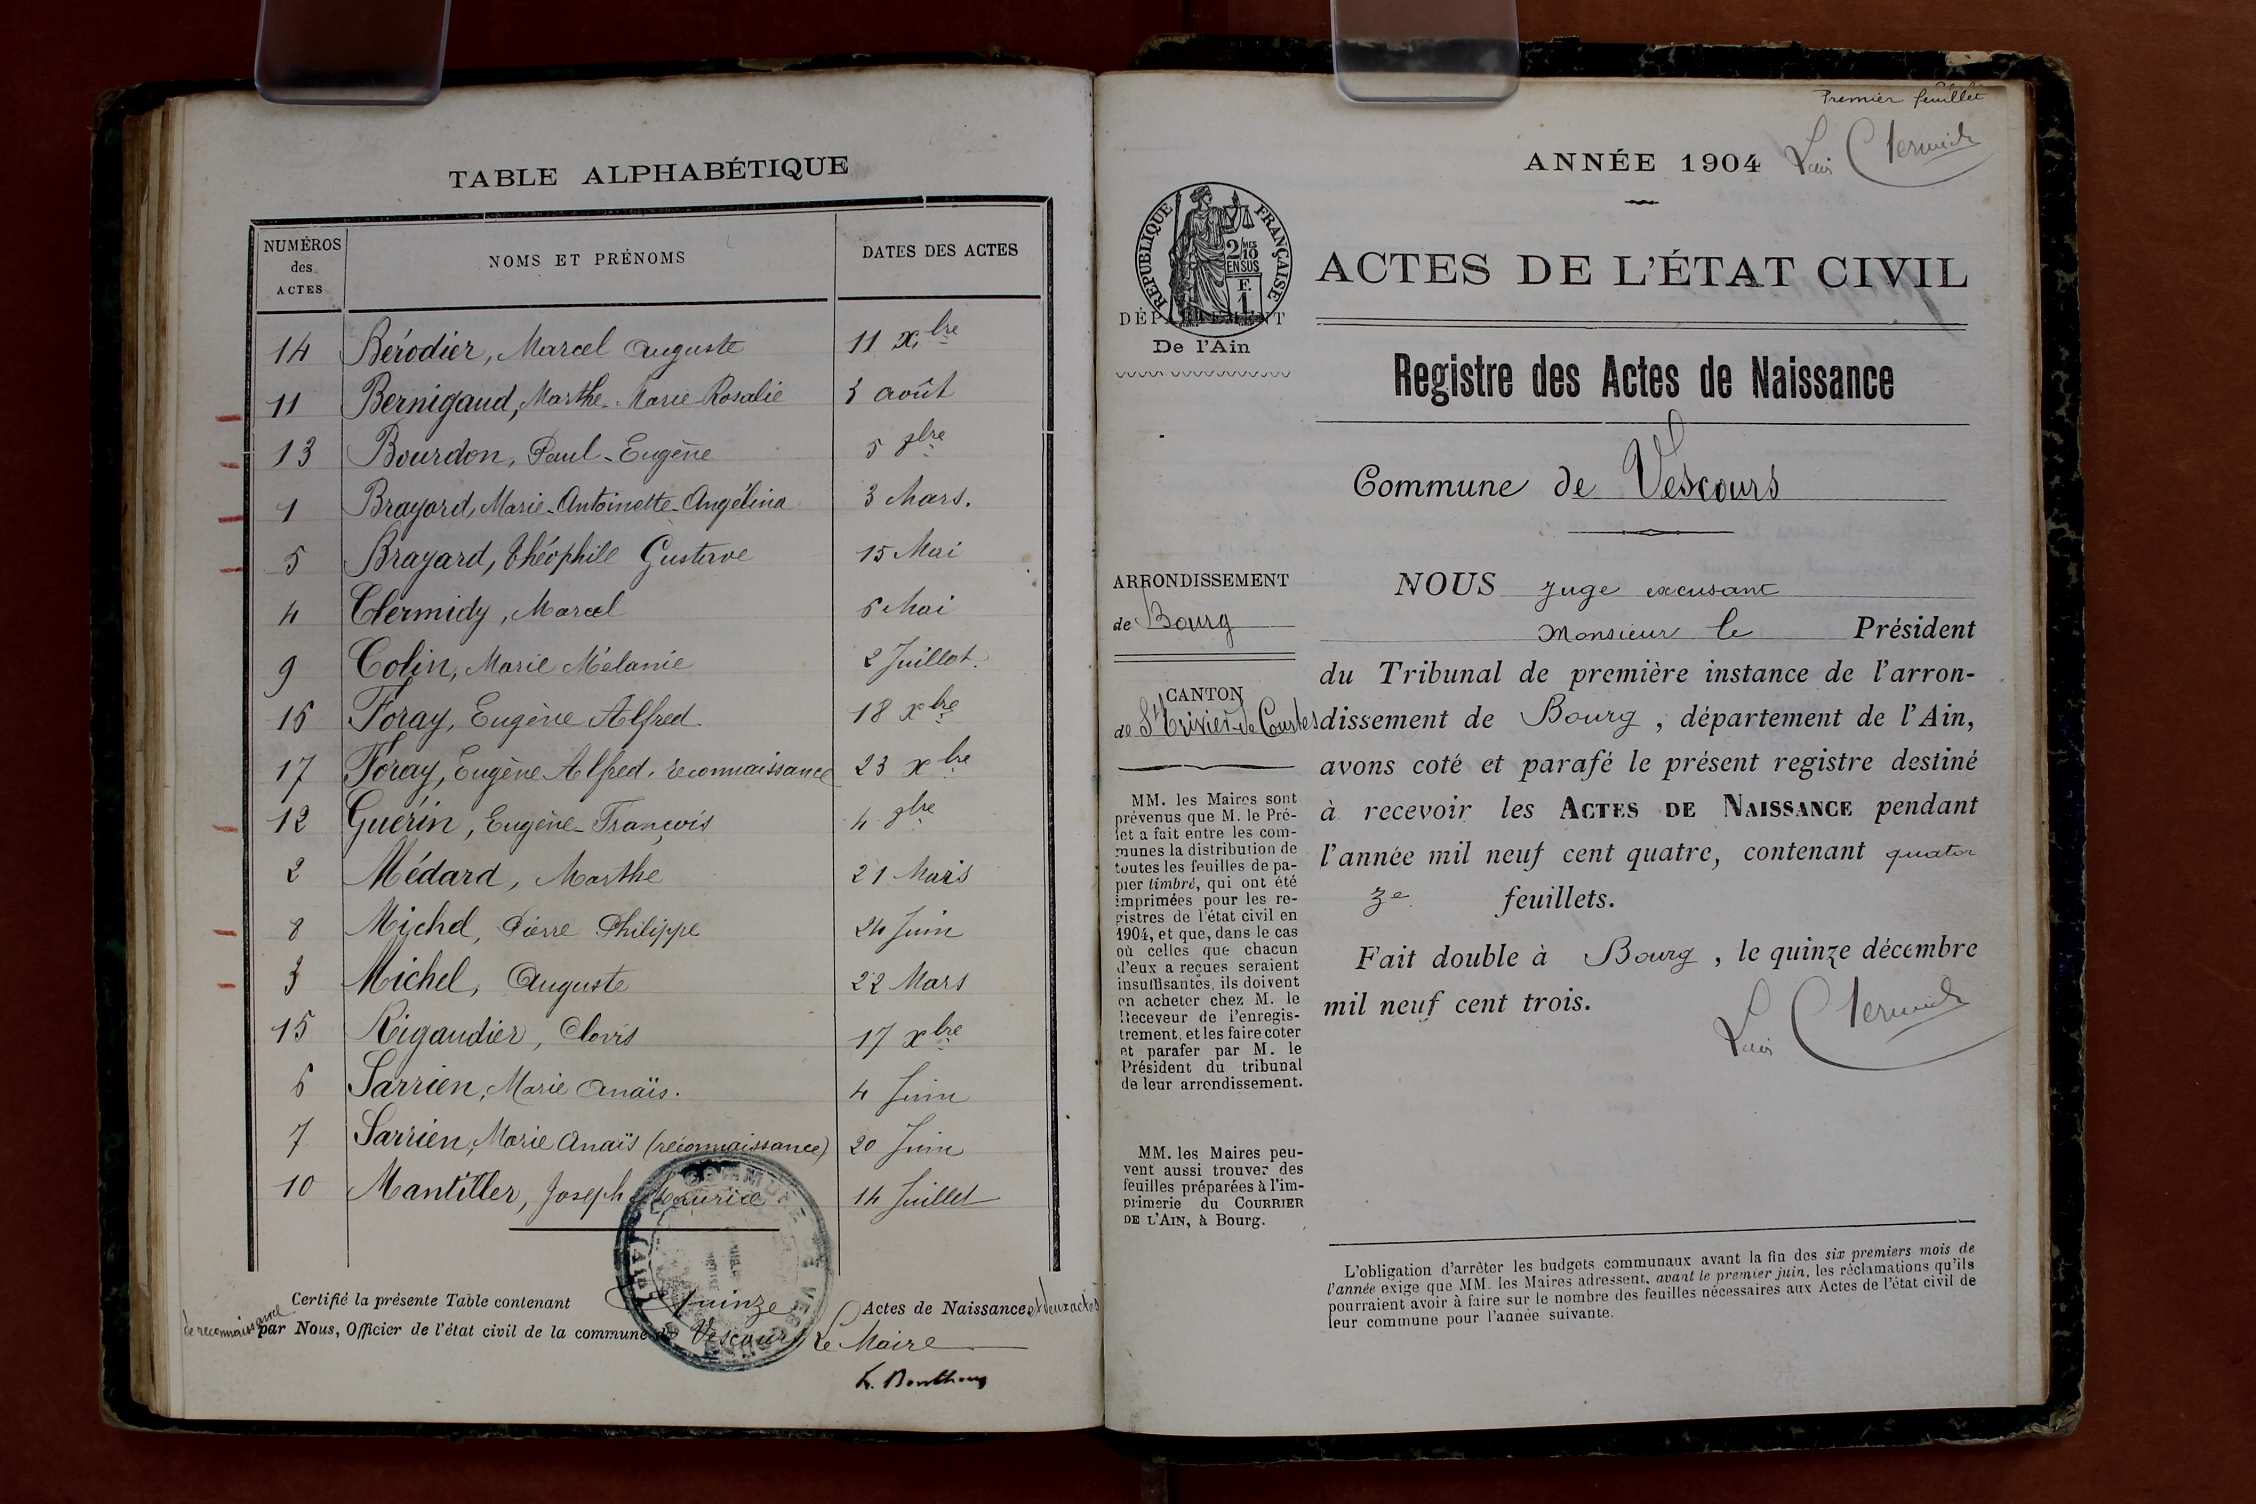 TABLE ALPHABÉTIQUE
NUMÉROS des ACTES NOMS ET PRÉNOMS DATES DES ACTES
14 Bérodier, Marcel Auguste 11 Xbre
11 Bernigaud, Marthe-Marie Rosalie 3 août
13 Bourdon, Paul-Eugène 5 9bre
1 Brayard, Marie-Antoinette-Angélina 3 Mars.
5 Brayard, Théophile Gustave 15 Mai
4 Clermidy, Marcel 6 Mai
9 Colin, Marie Mélanie 2 Juillet.
16 Foray, Eugène Alfred. 18 Xbre
17 Foray, Eugène Alfred. reconnaissance 23 Xbre
12 Guérin, Eugène-François 4 9bre
2 Médard, Marthe 21 Mars
8 Michel, Pierre Philippe 24 Juin
3 Michel, Auguste 22 Mars
15 Rigaudier, Clovis 17 Xbre
6 Sarrien, Marie Anaïs. 4 Juin
7 Sarrien, Marie Anaïs (reconnaissance) 20 Juin
10 Mantiller, Joseph Maurice 14 Juillet
COMMUNE DE VESCOURS (AIN)
Certifié la présente Table contenant Quinze Actes de Naissance et deux actes
de reconnaissance par Nous, Officier de l'état civil de la commune de Vescours
Le Maire
Premier feuillet
ANNÉE 1904
RÉPUBLIQUE FRANÇAISE
2/10MES
EN SUS
F.
1
ACTES DE L'ÉTAT CIVIL
DÉPARTEMENT
De l'Ain
Registre des Actes de Naissance
Commune de Vescours
ARRONDISSEMENT
de Bourg
CANTON
de St Trivier-de-Courtes
MM. les Maires sont
prévenus que M. le Pré-
fet a fait entre les com-
munes la distribution de
toutes les feuilles de pa-
pier timbré, qui ont été
imprimées pour les re-
gistres de l'état civil en
1904, et que, dans le cas
où celles que chacun
d'eux a reçues seraient
insuffisantes, ils doivent
en acheter chez M. le
Receveur de l'enregis-
trement, et les faire coter
et parafer par M. le
Président du tribunal
de leur arrondissement.
MM. les Maires peu-
vent aussi trouver des
feuilles préparées à l'im-
primerie du COURRIER
DE L'AIN, à Bourg.
NOUS Juge excusant
Monsieur le Président
du Tribunal de première instance de l'arron-
dissement de Bourg, département de l'Ain,
avons coté et parafé le présent registre destiné
à recevoir les ACTES DE NAISSANCE pendant
l'année mil neuf cent quatre, contenant quator
ze feuillets.
Fait double à Bourg, le quinze décembre
mil neuf cent trois.
L'obligation d'arrêter les budgets communaux avant la fin des six premiers mois de
l'année exige que MM. les Maires adressent, avant le premier juin, les réclamations qu'ils
pourraient avoir à faire sur le nombre des feuilles nécessaires aux Actes de l'état civil de
leur commune pour l'année suivante.